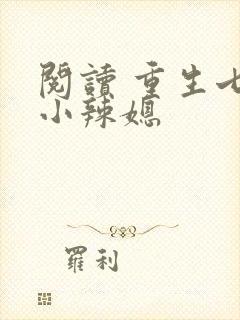 閱讀 重生七
小辣媳
羅利